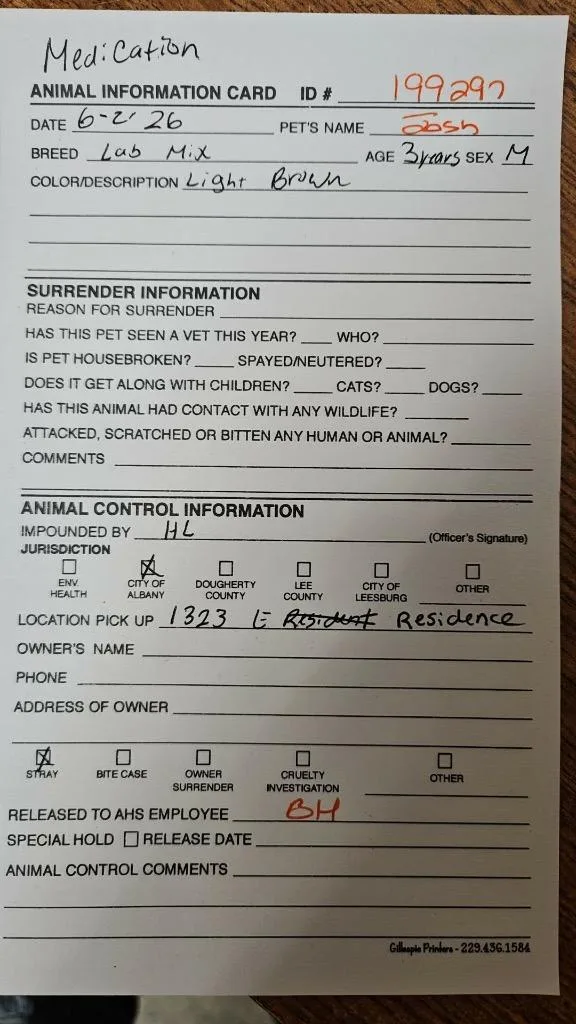 Medication
ANIMAL INFORMATION CARD ID # 199297
DATE 6-2-26 PET'S NAME Josh
BREED Lab Mix AGE 3years SEX M
COLOR/DESCRIPTION Light Brown
SURRENDER INFORMATION
REASON FOR SURRENDER
HAS THIS PET SEEN A VET THIS YEAR? WHO?
IS PET HOUSEBROKEN? SPAYED/NEUTERED?
DOES IT GET ALONG WITH CHILDREN? CATS? DOGS?
HAS THIS ANIMAL HAD CONTACT WITH ANY WILDLIFE?
ATTACKED, SCRATCHED OR BITTEN ANY HUMAN OR ANIMAL?
COMMENTS
ANIMAL CONTROL INFORMATION
IMPOUNDED BY HL (Officer's Signature)
JURISDICTION
ENV. HEALTH CITY OF ALBANY DOUGHERTY COUNTY LEE COUNTY CITY OF LEESBURG OTHER
LOCATION PICK UP 1323 E Resident Residence
OWNER'S NAME
PHONE
ADDRESS OF OWNER
STRAY BITE CASE OWNER SURRENDER CRUELTY INVESTIGATION OTHER
RELEASED TO AHS EMPLOYEE BH
SPECIAL HOLD RELEASE DATE
ANIMAL CONTROL COMMENTS
Gillespie Printers - 229.436.1584